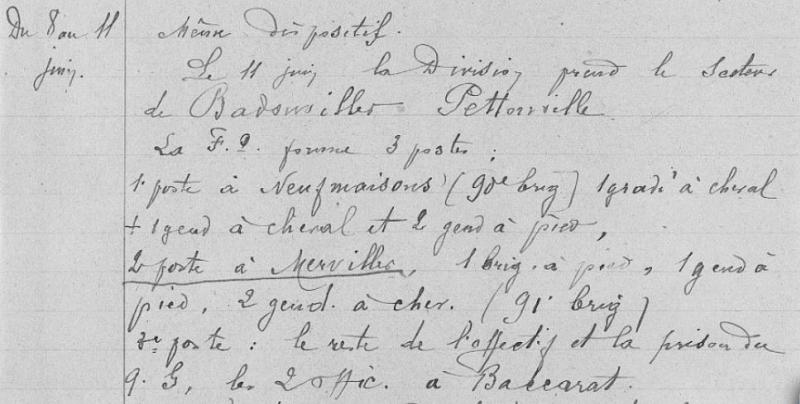 Du 8 au 11 Même dispositif.
juin. Le 11 juin la Division prend le secteur
de Badonviller Pettonville
La F. P. forme 3 postes :
1. poste à Neufmaisons (90e brig) 1 gradé à cheval
+ 1 gend à cheval et 2 gend à pied,
2 poste à Merviller, 1 brig. à pied, 1 gend à
pied, 2 gend. à chev. (91e brig)
3e poste : le reste de l'effectif et la prison du
Q. G, les 2 offic. à Baccarat.